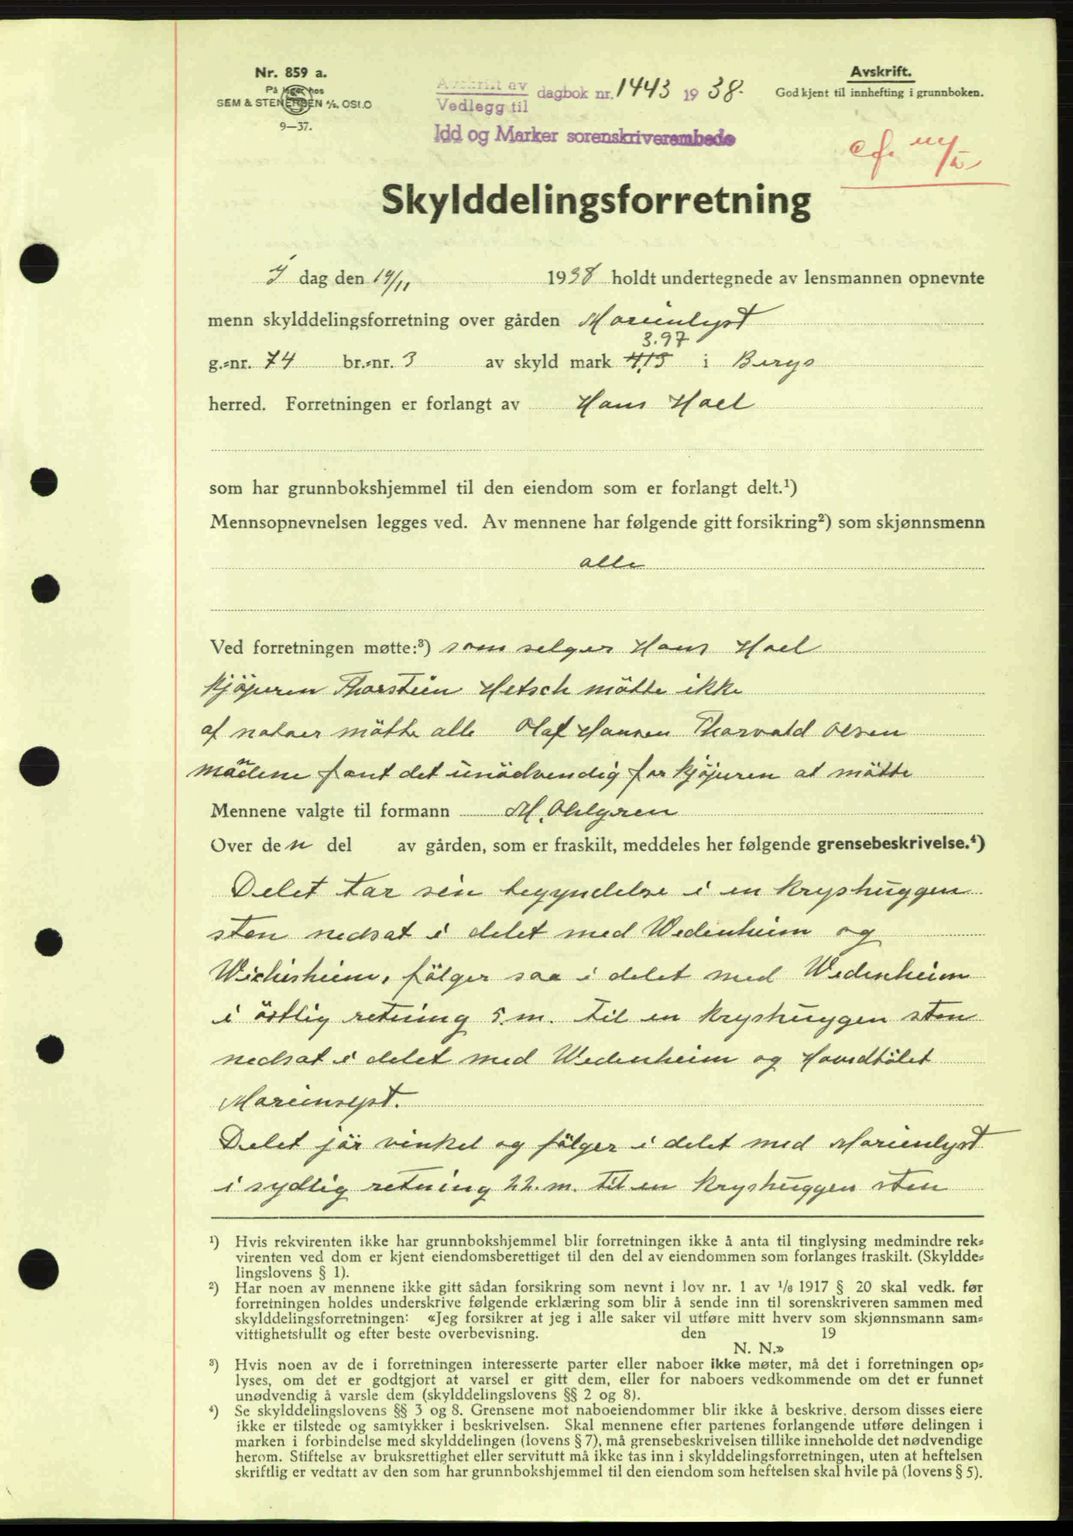 Nr. 859 a.
På lager hos
SEM & STENERSEN A/S. OSLO
9—37.
Avskrift av
Vedlegg til
dagbok nr. 1443 1938.
Idd og Marker sorenskriverembede
Avskrift.
Godkjent til innhefting i grunnboken.
Skylddelingsforretning
I dag den 19/11 1938 holdt undertegnede av lensmannen opnevnte
menn skylddelingsforretning over gården Marienlyst
3.97
g.=nr. 74 br.=nr. 3 av skyld mark 4,15 i Bergs
herred. Forretningen er forlangt av Hans Hoel
som har grunnbokshjemmel til den eiendom som er forlangt delt.¹)
Mennsopnevnelsen legges ved. Av mennene har følgende gitt forsikring²) som skjønnsmenn
alle
Ved forretningen møtte:³) som selger Hans Hoel
kjöperen Thorstein Hetsch mötte ikke
af naboer mötte alle Olaf Hansen Thorvald Olsen
mændene fant det unödvendig for kjöperen at mötte
Mennene valgte til formann M. Ohlgren
Over den del av gården, som er fraskilt, meddeles her følgende grensebeskrivelse.⁴)
Delet tar sin begyndelse i en kryshuggen
sten nedsat i delet med Wedenheim og
fölger saa i delet med Wedenheim
i östlig retning 5. m. til en kryshuggen sten
nedsat i delet med Wedenheim og Hovedbölet
Marienlyst.
Delet jör vinkel og fölger i delet med Marienlyst
i sydlig retning 22. m. til en kryshuggen sten
¹) Hvis rekvirenten ikke har grunnbokshjemmel blir forretningen ikke å anta til tinglysing medmindre rek=
virenten ved dom er kjent eiendomsberettiget til den del av eiendommen som forlanges fraskilt. (Skyldde=
lingslovens § 1).
²) Har noen av mennene ikke gitt sådan forsikring som nevnt i lov nr. 1 av 1/8 1917 § 20 skal vedk. før
forretningen holdes underskrive følgende erklæring som blir å sende inn til sorenskriveren sammen med
skylddelingsforretningen: «Jeg forsikrer at jeg i alle saker vil utføre mitt hverv som skjønnsmann sam=
vittighetsfullt og efter beste overbevisning. den 19
N. N.»
³) Hvis noen av de i forretningen interesserte parter eller naboer ikke møter, må det i forretningen op=
lyses, om det er godtgjort at varsel er gitt dem, eller for naboers vedkommende om det er funnet
unødvendig å varsle dem (skylddelingslovens §§ 2 og 8).
⁴) Se skylddelingslovens §§ 3 og 8. Grensene mot naboeiendommer blir ikke å beskrive, dersom disses eiere
ikke er tilstede og samtykker i beskrivelsen. Skal mennene efter partenes forlangende utføre delingen i
marken i forbindelse med skylddelingen (lovens § 7), må grensebeskrivelsen tillike inneholde det nødvendige
herom. Stiftelse av bruksrettighet eller servitutt må ikke tas inn i skylddelingsforretningen, uten at heftelsen
skriftlig er vedtatt av den som har grunnbokshjemmel til den eiendom som heftelsen skal hvile på (lovens § 5).